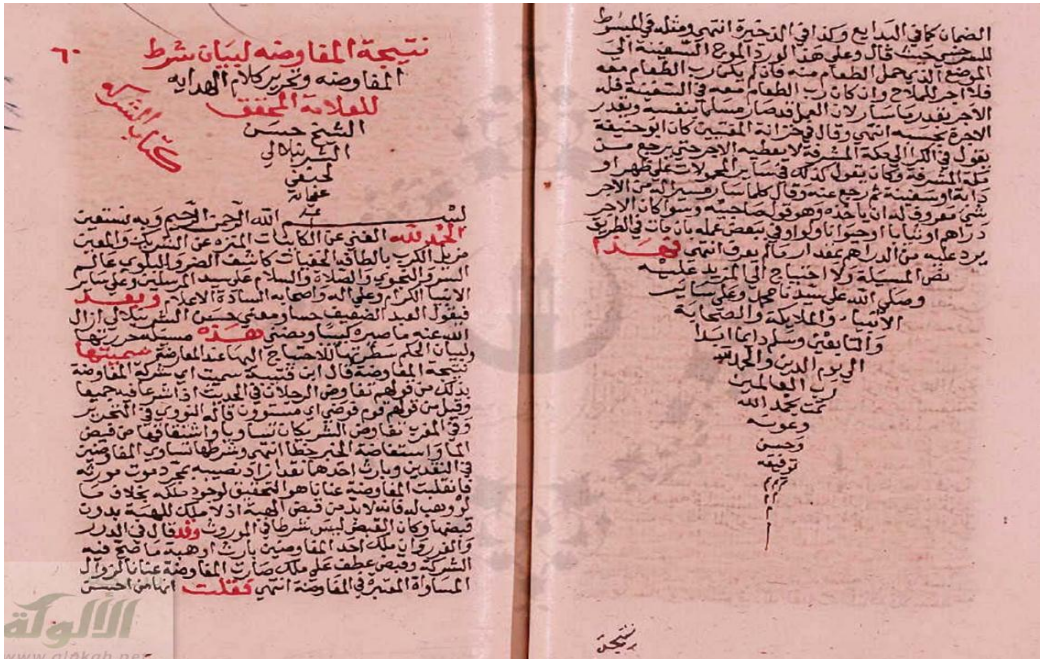 الضمان كما في البدايع وكذا في الذخيرة انتهى ومثله في المبسوط
للسرخسي حيث قال وعلى هذا لو رد الموج السفينة الى
الموضع الذي حمل الطعام منه فان لم يكن رب الطعام معه
فلا اجر للملاح وان كان رب الطعام معه في السفينة فله
الاجر بقدر ما سار لان العمل قد صار مسلما بنفسه وبقدر
الاجرة بحسبه انتهى وقال في خزانة المفتيين كان ابو حنيفة
يقول في الكرا الى مكة المشرفة لا يعطيه الاجر حتى يرجع من
مكة المشرفة وكان يقول كذلك في ساير المحمولات على ظهر او
دابة او سفينة ثم رجع عنه وقال كلما سار مسيرا له من الاجر
شي معروف له ان ياخذه وهو قول صاحبيه وسوا كان الاجر
دراهم او ثيابا او حيوانا ولو اوفي بعض عمله بان مات في الطريق
يرد عليه من الدراهم بقدر ما لم يعرف انتهى فهذا
نص المسيلة ولا احتياج الى المزيد عليه
وصلى الله على سيدنا محمد وعلى ساير
الانبياء والملايكة والصحابة
والتابعين وسلم دايما ابدا
الى يوم الدين والحمد لله
رب العالمين
تمت بحمد الله
وعونه
وحسن
توفيقه
نتيجة
٦٠
نتيجة المفاوضه لبيان شرط
المفاوضه وتحرير كلام الهدايه
للعلامة المحقق
الشيخ حسن
الشرنبلالي
الحنفي
عفى الله
عنه
كتاب الشركه
بسم الله الرحمن الرحيم وبه نستعين
الحمد لله الغني عن الكاينات المنزه عن الشريك والمعين
مزيل الكرب بالطافه الخفيات كاشف الضر والبلوى عالم
السر والنجوى والصلاة والسلام على سيد المرسلين وعلى ساير
الانبيا الكرام وعلى اله واصحابه السادة الاعلام وبعد
فيقول العبد الضعيف حسا ومعنى حسن الشرنبلالي ازال
الله عنه ما صيره نسيا ويضنى هذه مسيلة حررتها
ولبيان الحكم سطرتها للاحتياج اليها عند المعارضة سميتها
نتيجة المفاوضة قال ابن قتيبة سميت اي شركة المفاوضة
بذلك من قولهم تفاوض الرجلان في الحديث اذا شرعا فيه جميعا
وقيل من قولهم قوم فوضى اي مستوون قاله النووي في التحرير
وفي المغرب تفاوض الشريكان تساويا واشتقاقها من فيض
الما واستفاضة الخبر خطا انتهى وشرطها تساوي المفاوضين
في النقدين وبارث احدها نقدا زاد نصيبه بمجرد موت مورثه
فانقلبت المفاوضة عنانا هو التحقيق لوجود ملكه بخلاف ما
لو وهب له فانه لا بد من قبض الهبة اذ لا ملك للهبة بدون
قبضها وكان القبض ليس شرطا في الموروث وقد قال في الدرر
والغرر وان ملك احد المفاوضين بارث او هبة ما تصح فيه
الشركة وقبض عطف على ملك صارت المفاوضة عنانا لزوال
المساواة المعتبرة في المفاوضة انتهى فقلت انها من احسن
الألوكة
www.alukah.net